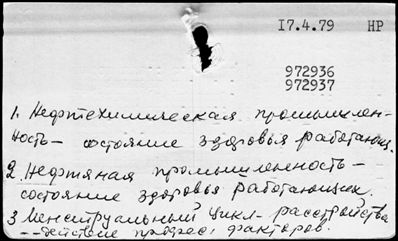 I7.4.79 НР
972936
972937
1. Нефтехимическая промышлен-
ность — состояние здоровья работающих.
2. Нефтяная промышленность —
состояние здоровья работающих.
3. Менструальный цикл — расстройства
-- действие професс. факторов.